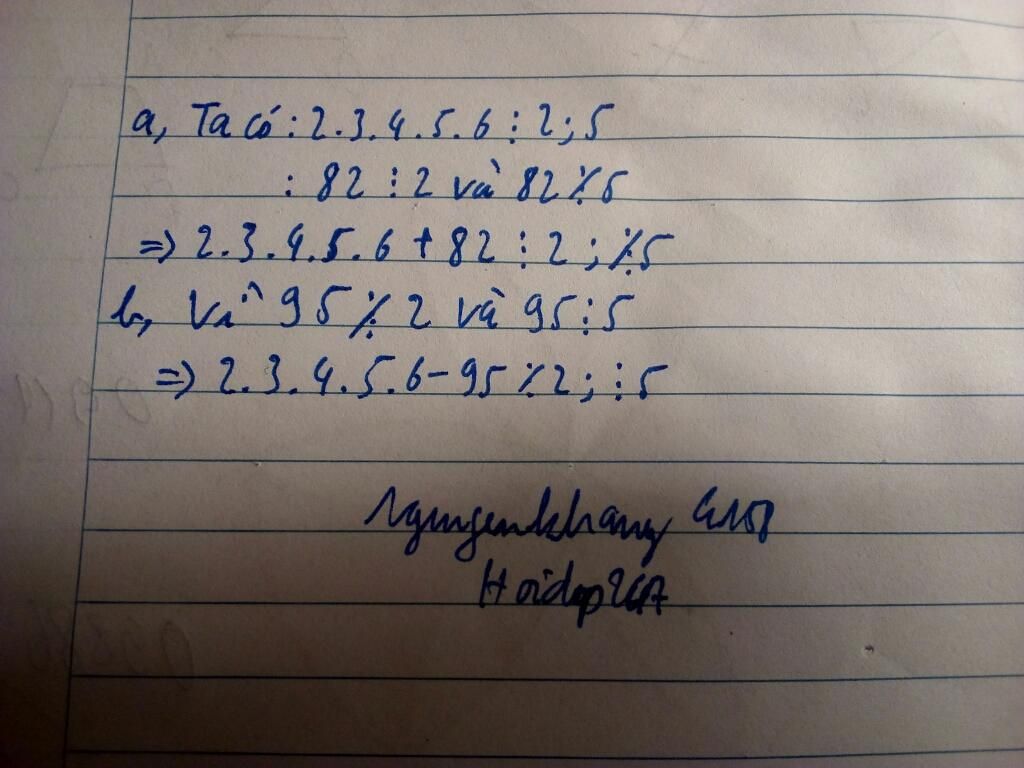 a, Ta có : 2.3.4.5.6 ⋮ 2 ; 5
: 82 ⋮ 2 và 82 ⋮̸ 5
=> 2.3.4.5.6 + 82 ⋮ 2 ; ⋮̸ 5
b, Vì 95 ⋮̸ 2 và 95 ⋮ 5
=> 2.3.4.5.6 - 95 ⋮̸ 2 ; ⋮ 5
Nguyenkhang
Hoidap247